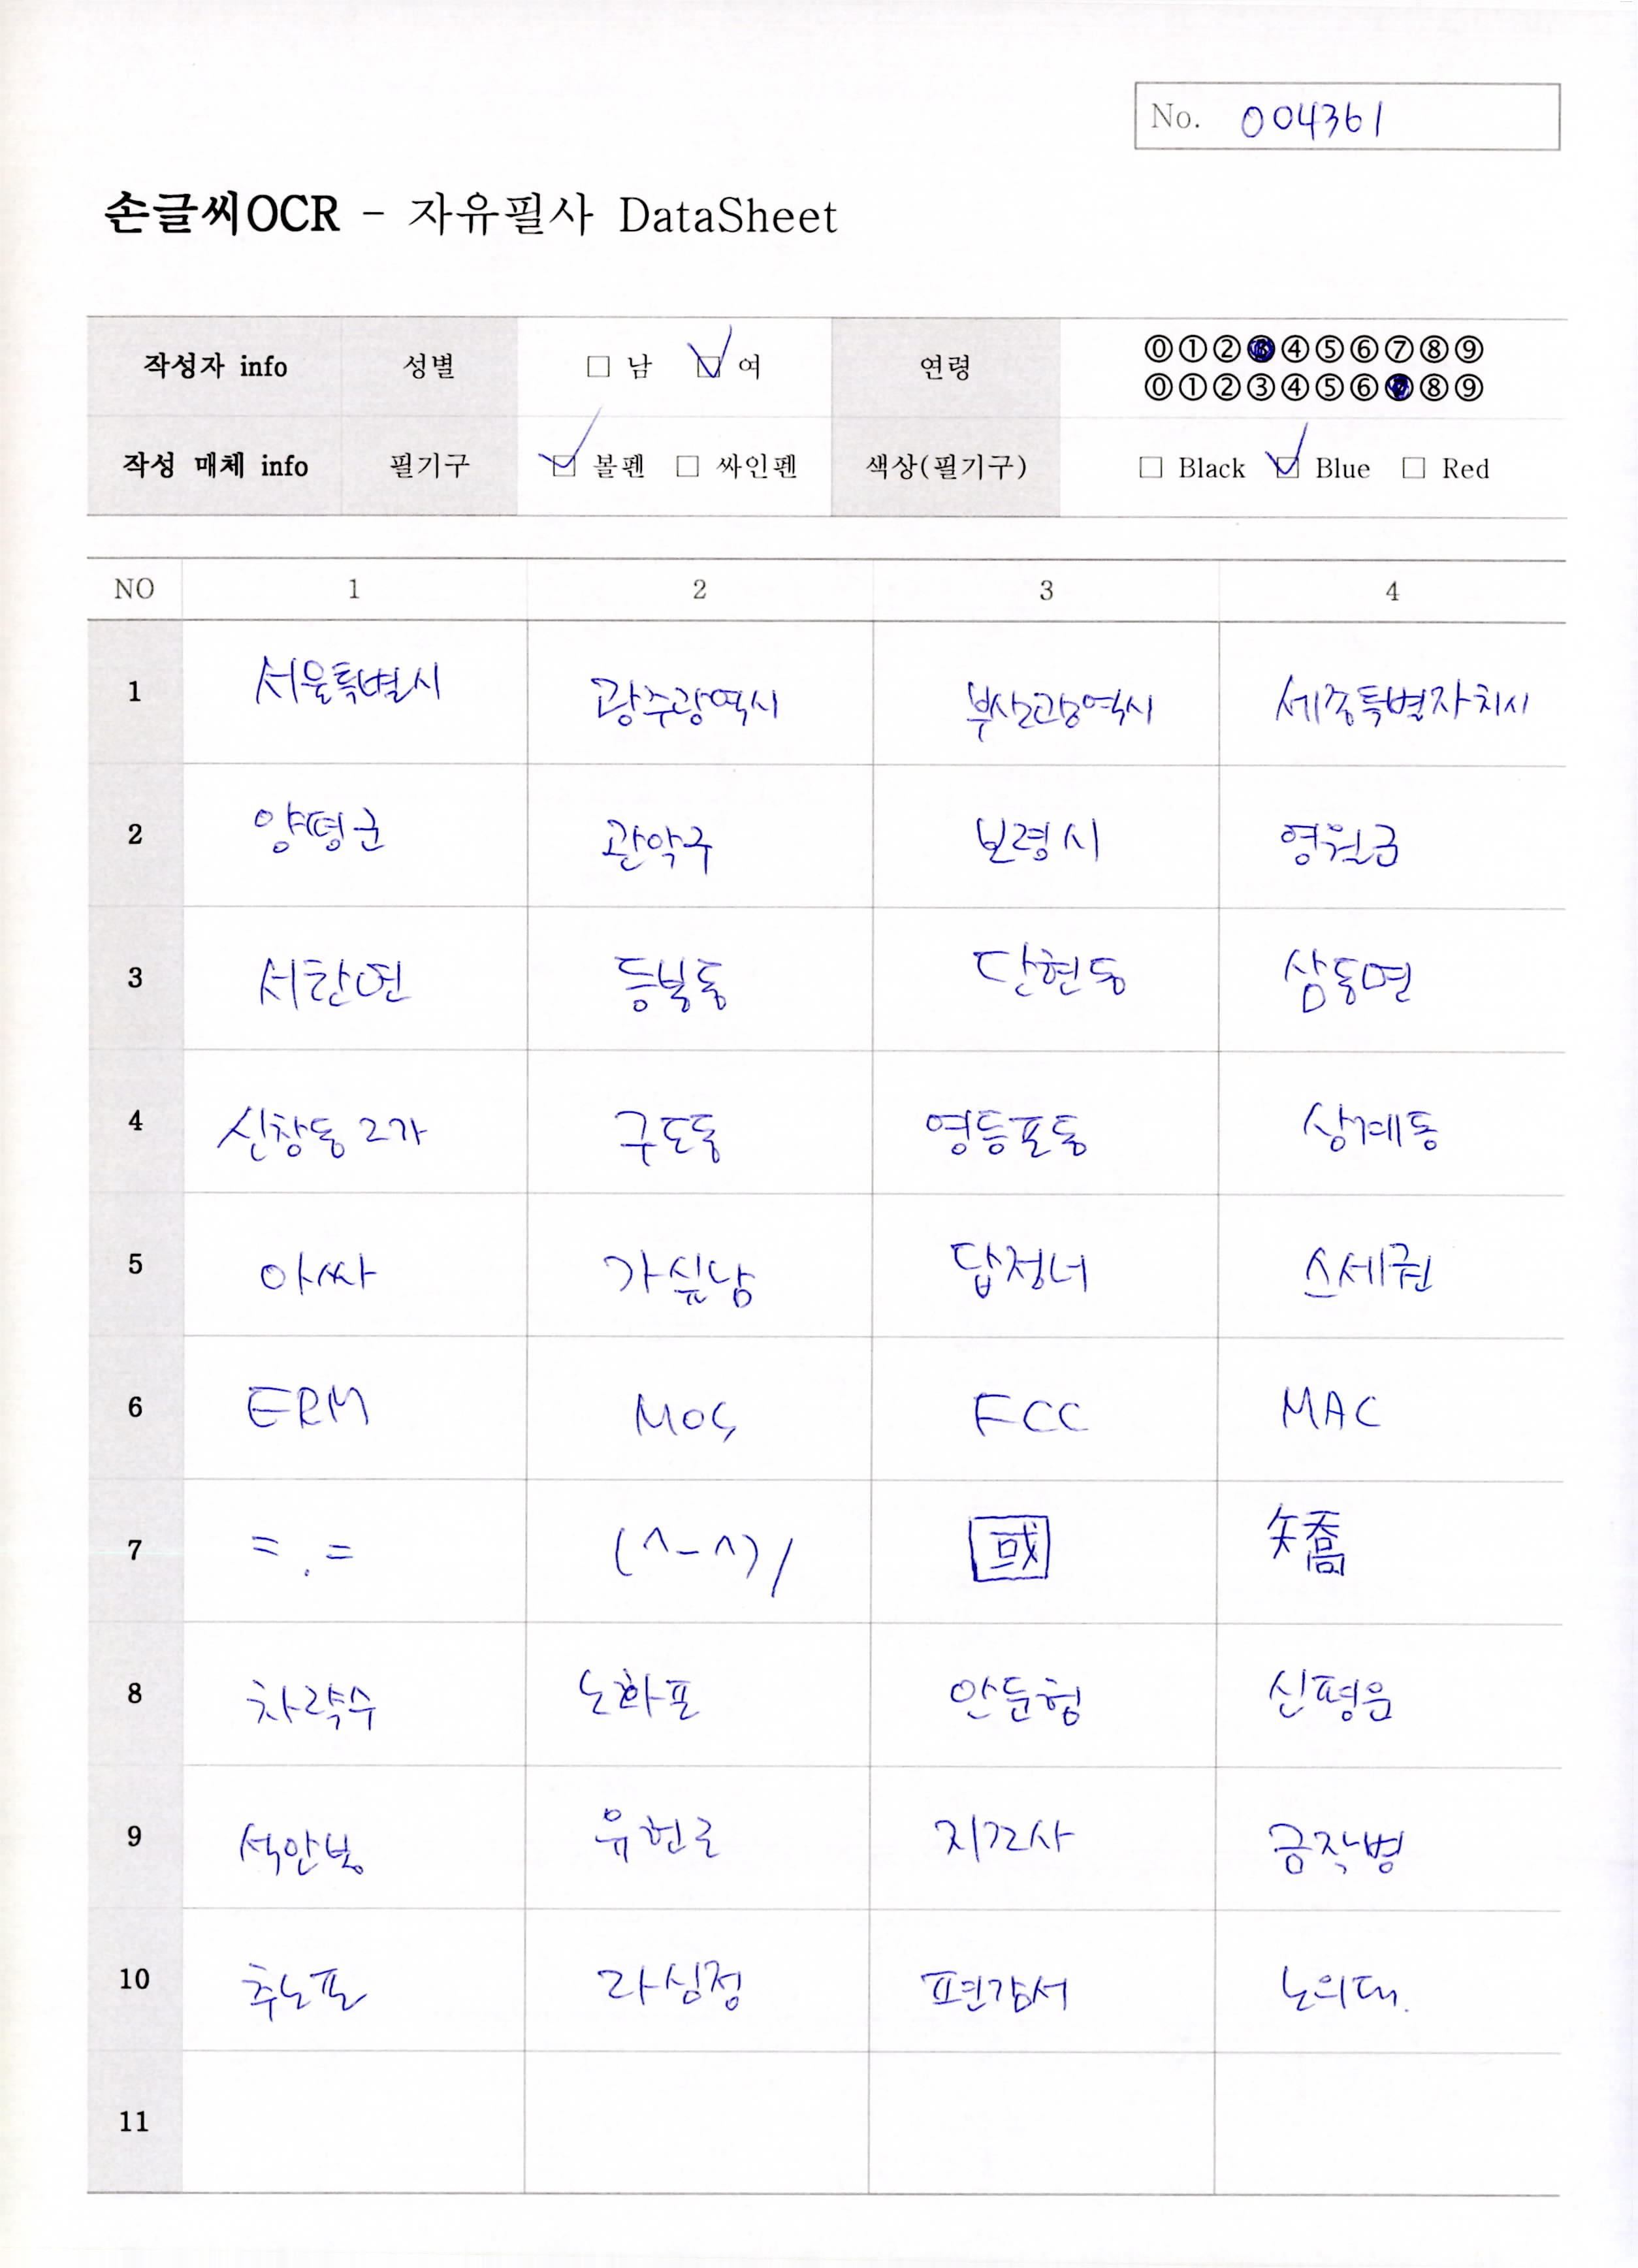 No. 004361
손글씨OCR - 자유필사 DataSheet
작성자 info 성별 □ 남 ☑ 여 연령 ⓪①②③④⑤⑥⑦⑧⑨
⓪①②③④⑤⑥⑦⑧⑨
작성 매체 info 필기구 ☑ 볼펜 □ 싸인펜 색상(필기구) □ Black ☑ Blue □ Red
NO 1 2 3 4
1 서울특별시 광주광역시 부산광역시 세종특별자치시
2 양평군 관악구 보령시 영월군
3 서탄면 등북동 단현동 삼동면
4 신창동2가 구도동 영등포동 상계동
5 아싸 가싶남 답정너 스세권
6 ERM MOS FCC MAC
7 = . = (^-^)/ 國 矯
8 차략수 노화포 안둔형 신평운
9 석안봉 유헌로 지고사 금작병
10 추노포 라심정 편감서 노의대.
11